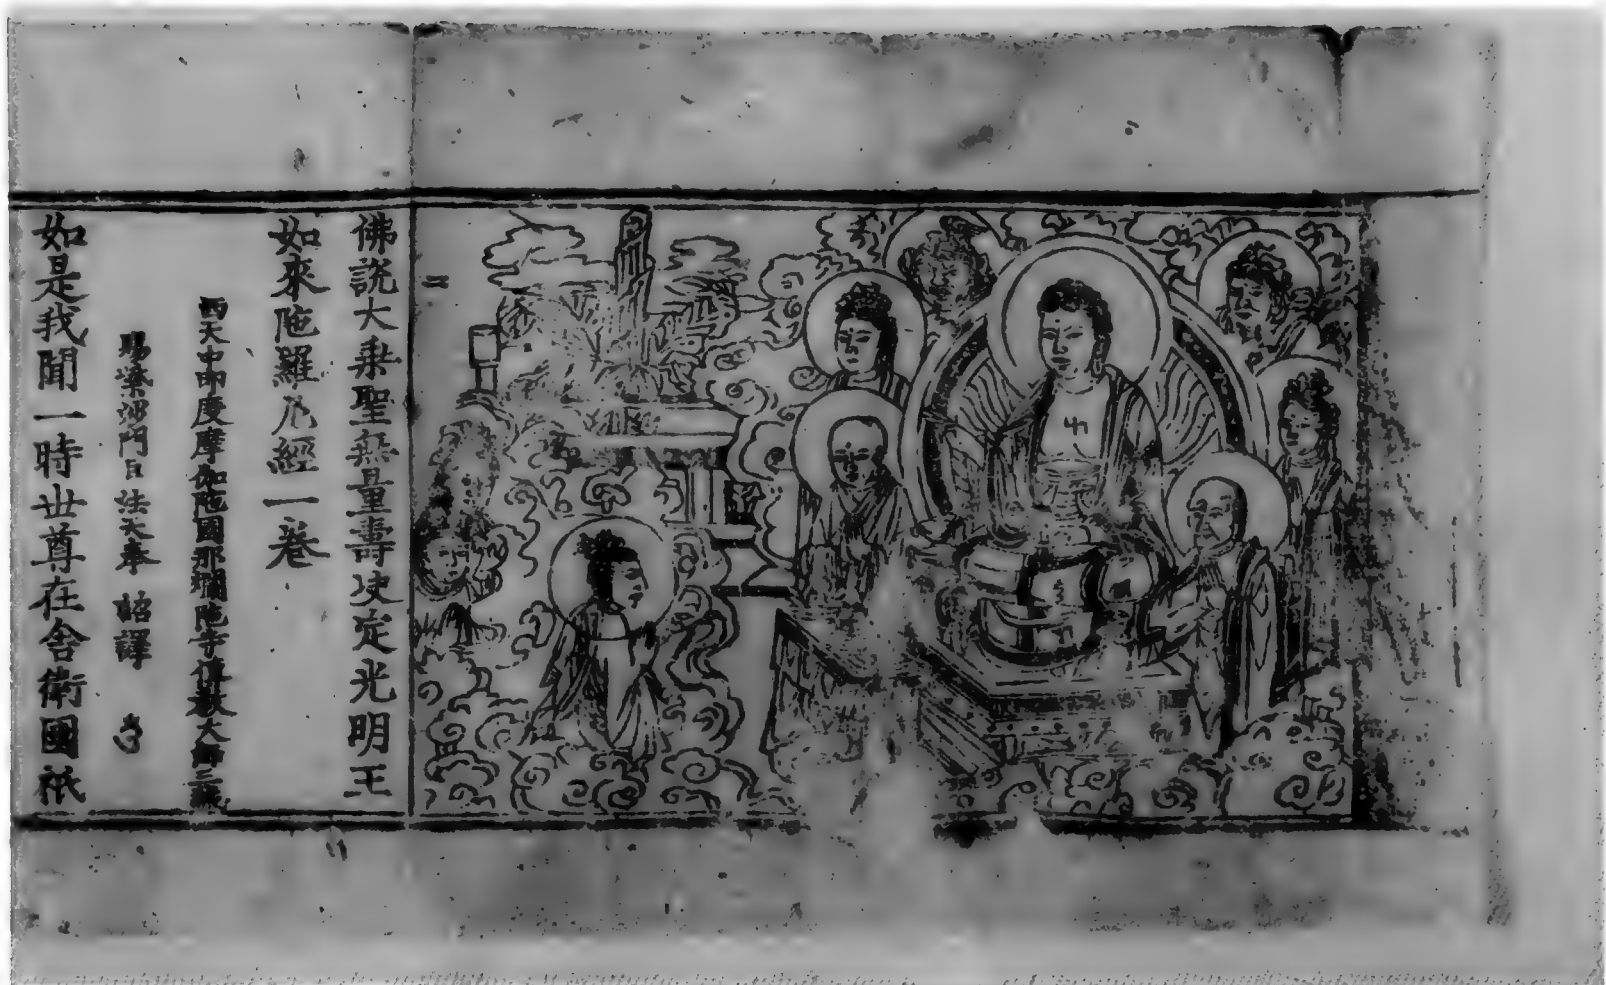 佛說大乘聖無量壽决定光明王
如來陁羅尼經一卷
西天中印度摩伽陁國那爛陁寺傳教大師三藏
賜紫沙門臣 法天奉 詔譯
如是我聞一時世尊在舍衛國祇
卍